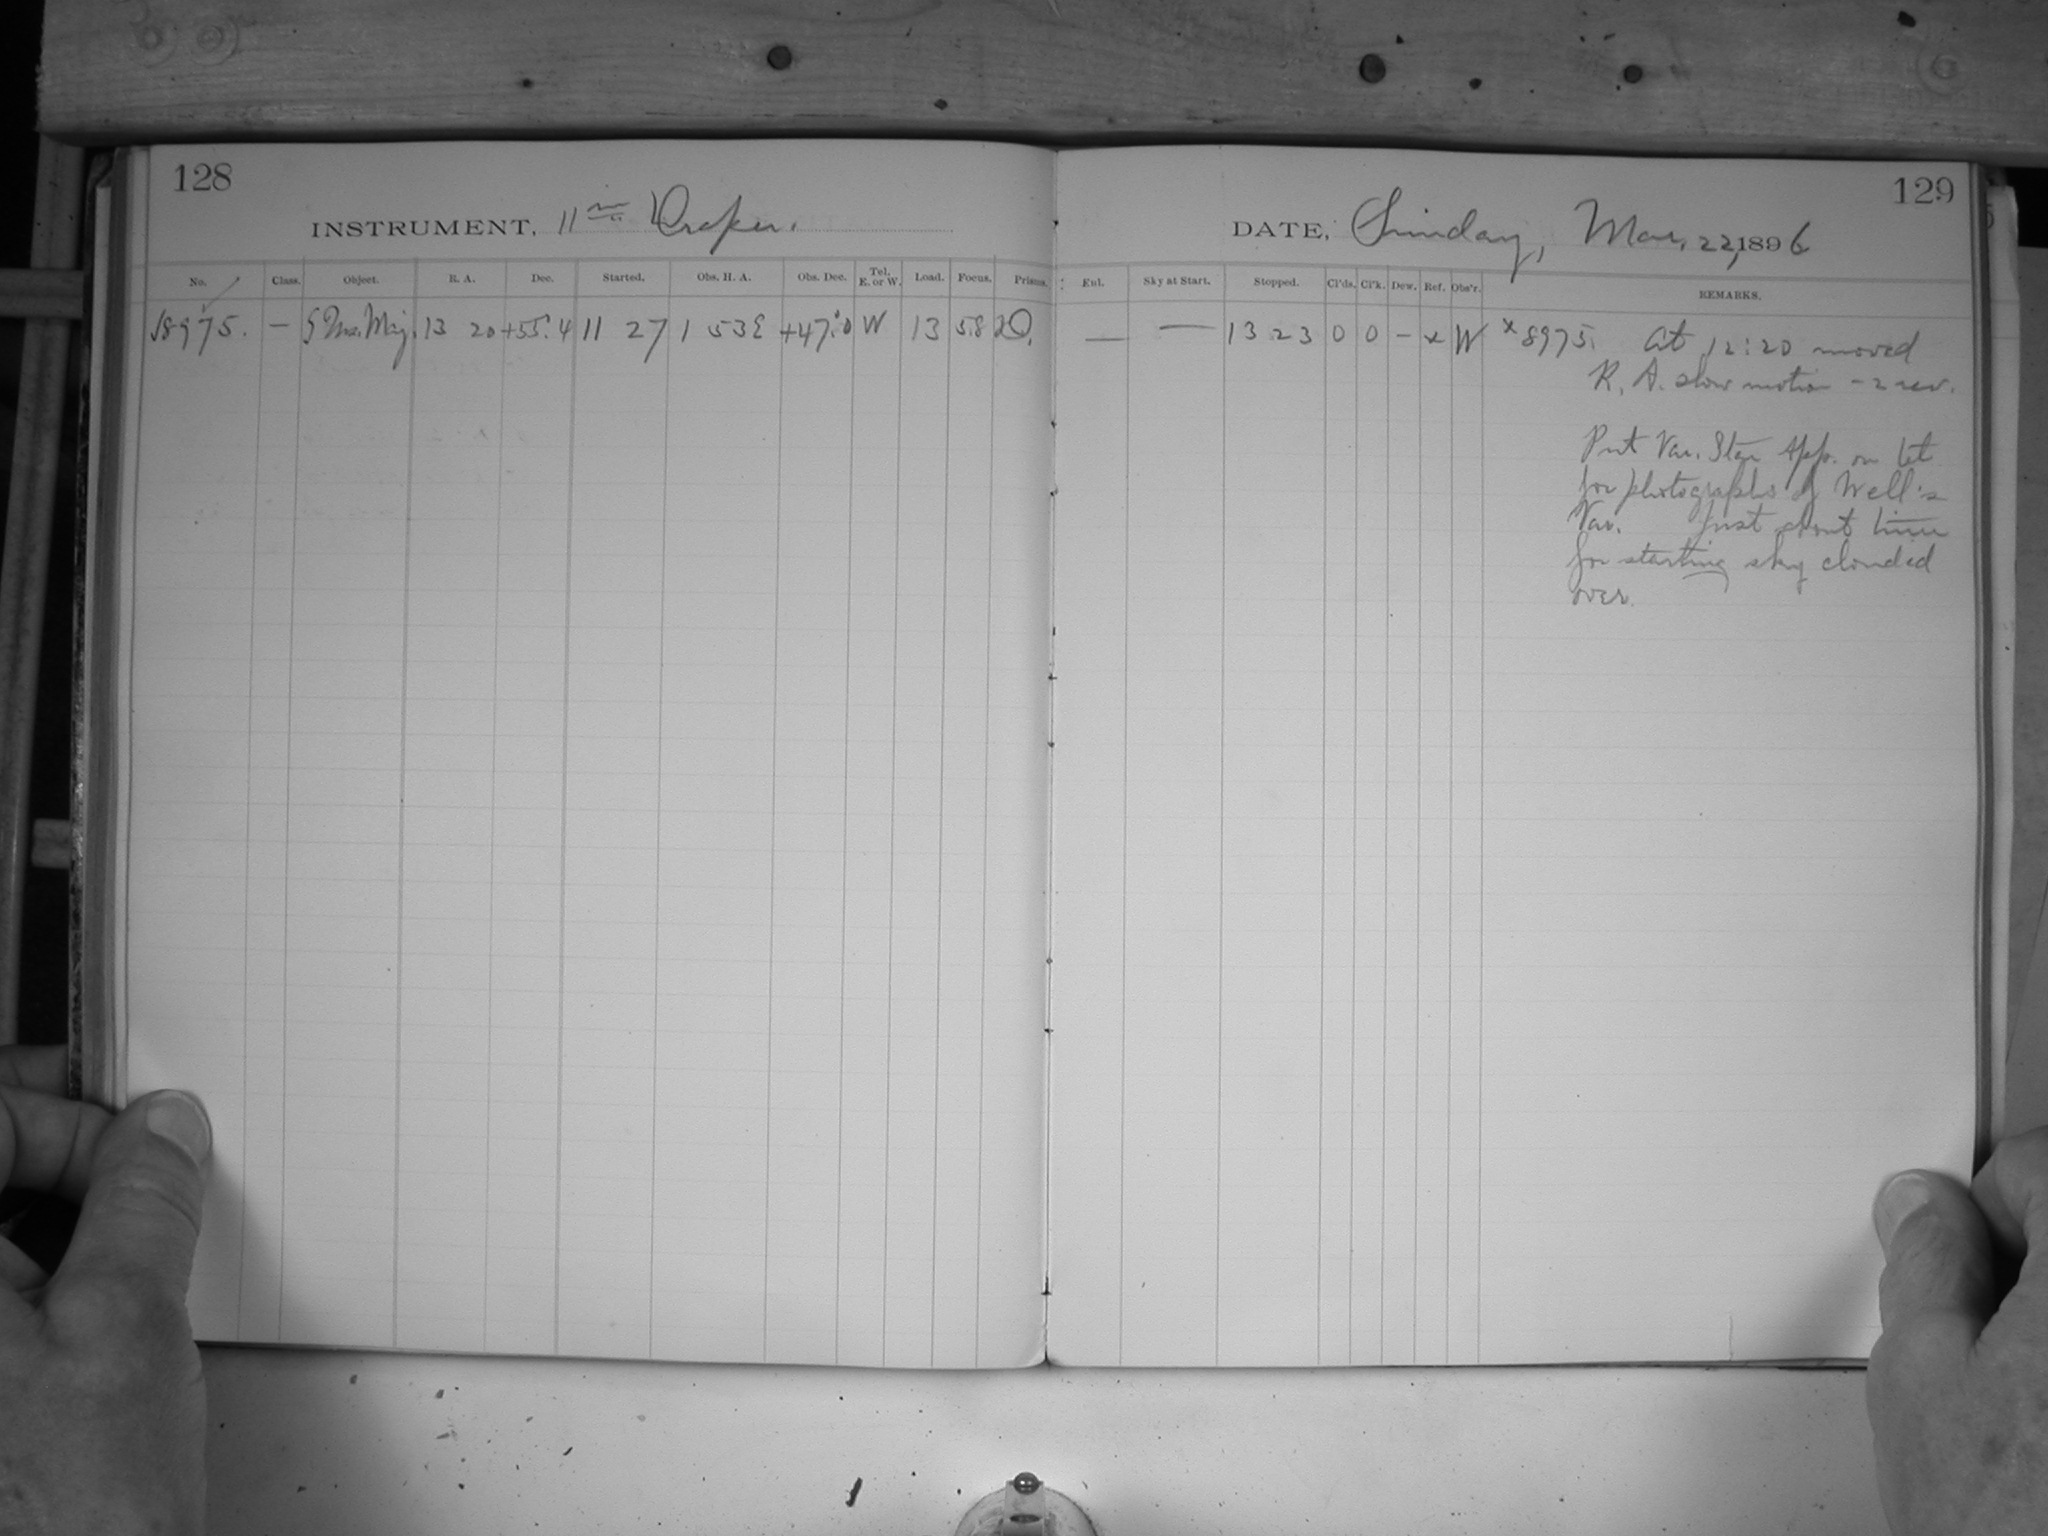 128
INSTRUMENT, 11 in Draper.
No. Class. Object. R. A. Dec. Started. Obs. H. A. Obs. Dec. Tel. E. or W. Load. Focus. Prisms.
8975. — ζ Urs. Maj. 13 20 +55.°4 11 27 1 53 E +47.°0 W 13 58 2O.
129
DATE, Sunday, Mar. 22, 1896
Ext. Sky at Start. Stopped. Cl'ds. Cl'k. Dew. Ref. Obs'r. REMARKS.
— — 13 23 0 0 – x W x 8975. At 12:20 moved
R. A. slow motion – 2 rev.
Put Var. Star App. on tel
for photographs of Well's
Var. Just about time
for starting sky clouded
over.